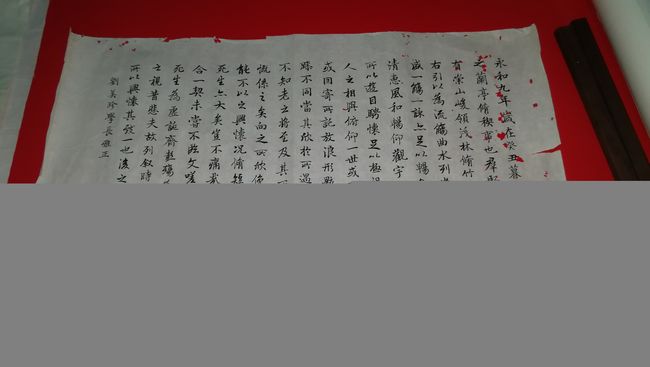 永和九年歲在癸丑暮
之蘭亭脩稧事也群
有崇山峻領茂林脩竹
右引以為流觴曲水列
盛一觴一詠亦足以暢
清惠風和暢仰觀宇
所以遊目騁懷足以極
人之相與俯仰一世或
或因寄所託放浪形
躁不同當其欣於所遇
不知老之將至及其
慨係之矣向之所欣俛
能不以之興懷況脩短
死生亦大矣豈不痛哉
合一契未嘗不臨文嗟
死生為虛誕齊彭殤
之視昔悲夫故列叙時
所以興懷其致一也後之
劉美珍學長雅正